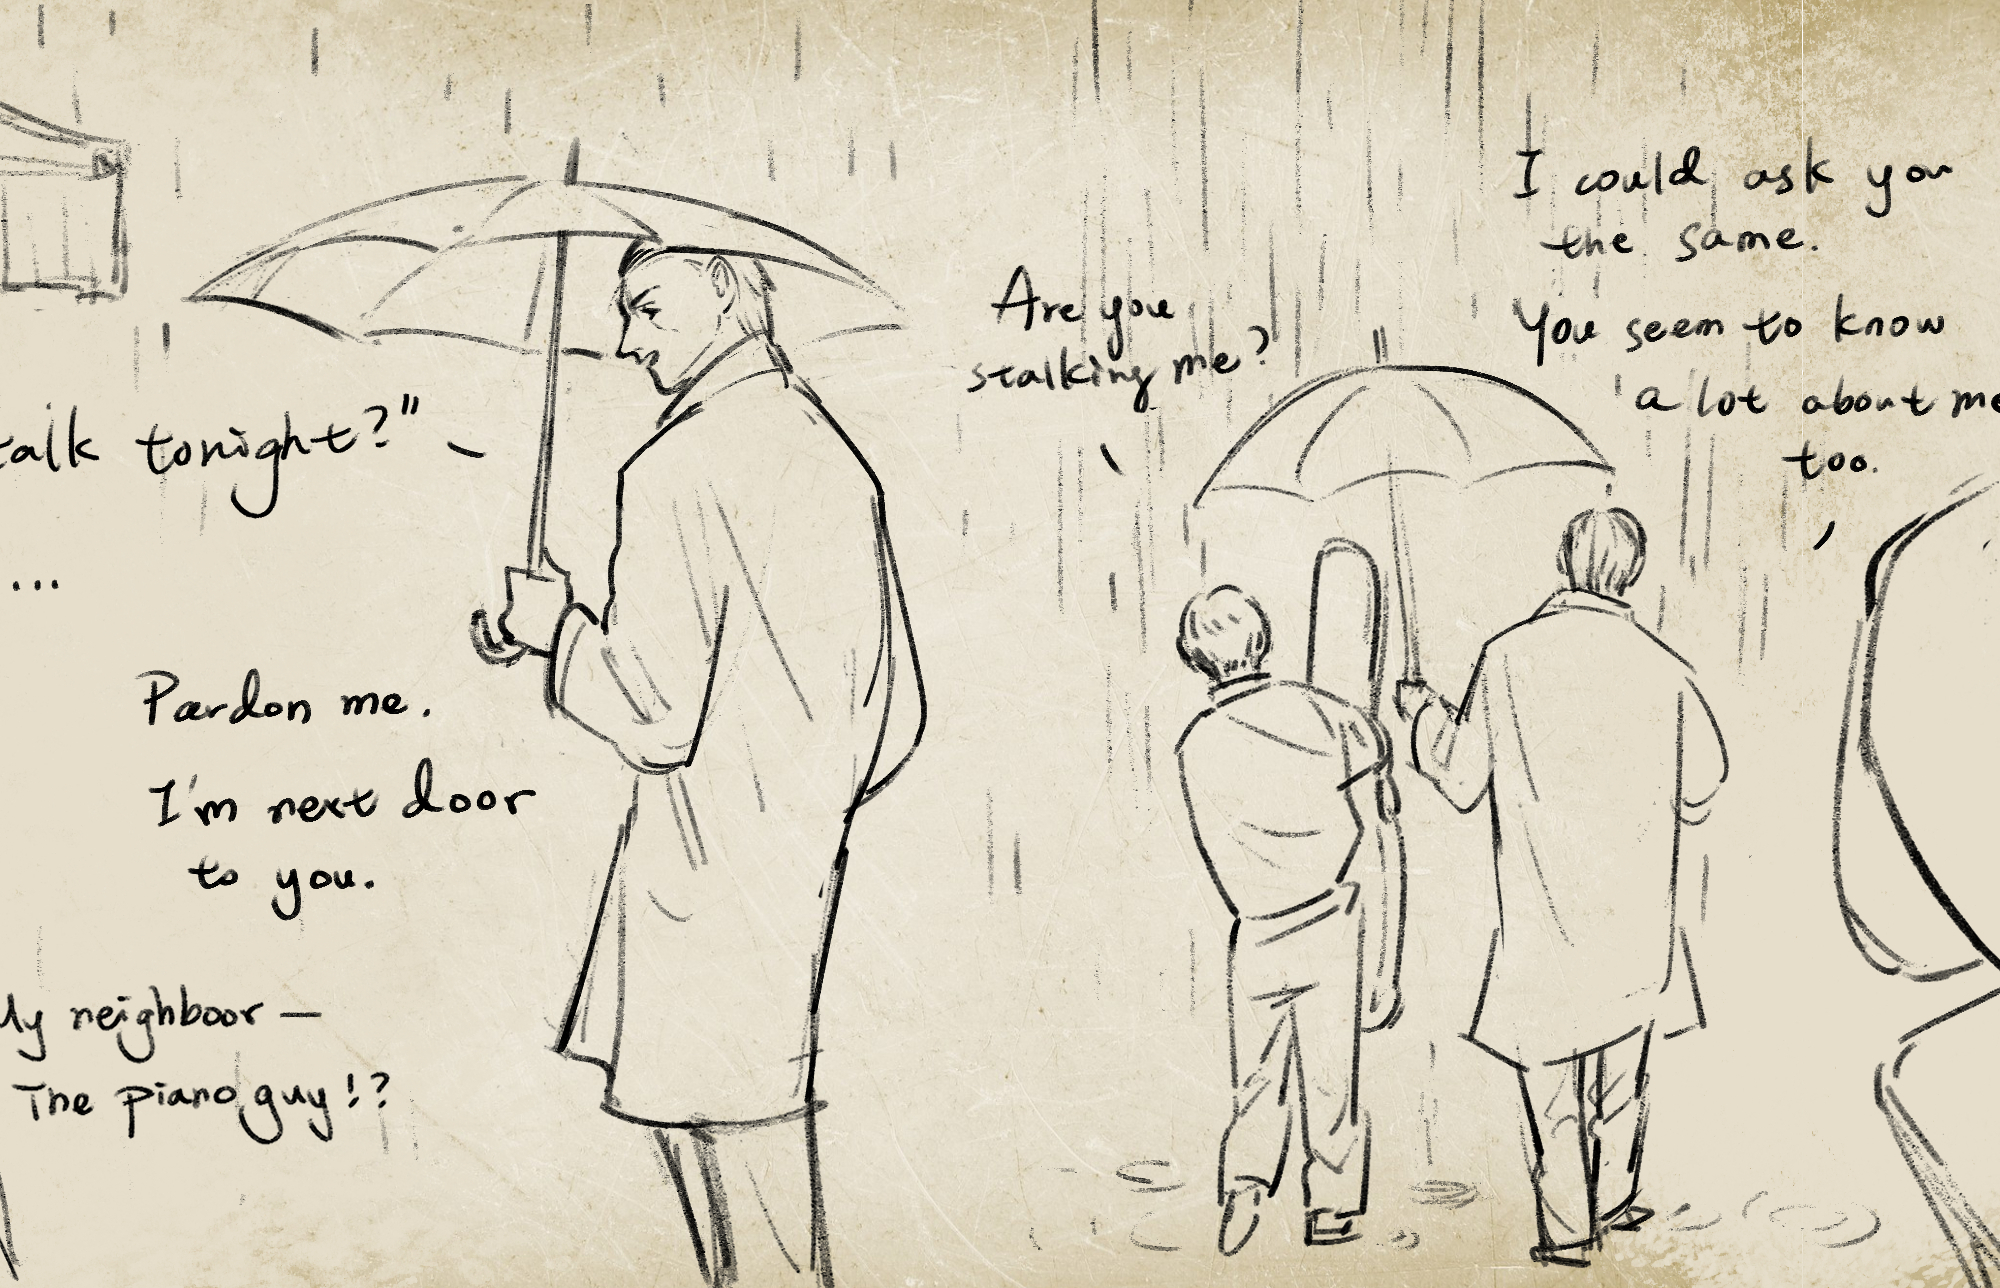 talk tonight?"
...
Pardon me.
I'm next door
to you.
My neighboor —
The piano guy!?
Are you
stalking me?
I could ask you
the same.
You seem to know
a lot about me
too.